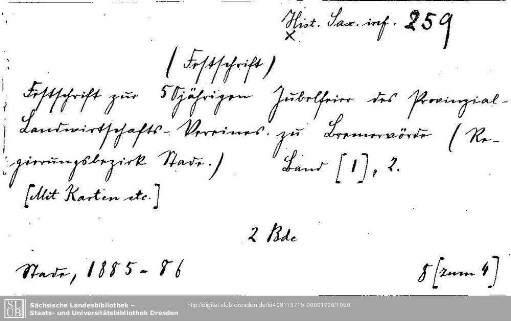 Hist. Sax. inf. 259
(Festschrift)
Festschrift zur 50jährigen Jubelfeier des Provinzial-
Landwirtschafts-Vereines zu Bremervörde (Re-
gierungsbezirk Stade.) Band [1], 2.
[Mit Karten etc.]
2 Bde
Stade, 1885-86 8 [zum 4]
SLUB
Sächsische Landesbibliothek –
Staats- und Universitätsbibliothek Dresden